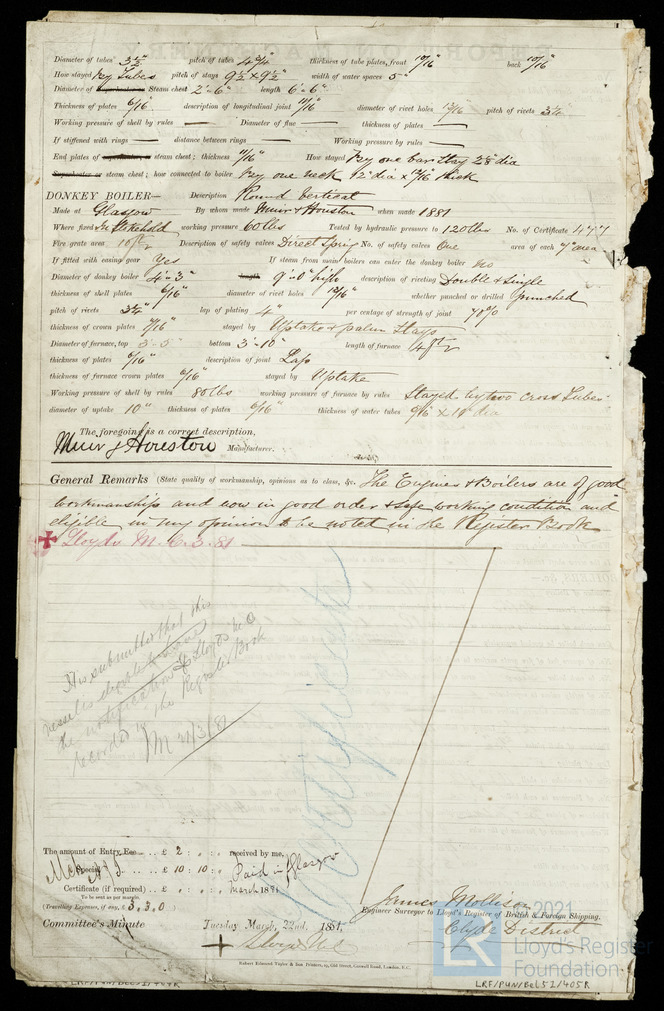 Diameter of tubes 3½" pitch of tubes 4¾" thickness of tube plates, front 10/16" back 10/16"
How stayed by Tubes pitch of stays 9½ x 9½" width of water spaces 5"
Diameter of Superheater or Steam chest 2'-6" length 6'-6"
Thickness of plates 6/16" description of longitudinal joint diameter of rivet holes 13/16" pitch of rivets 3¼"
Working pressure of shell by rules — Diameter of flue — thickness of plates —
If stiffened with rings — distance between rings — Working pressure by rules —
End plates of superheater, or steam chest; thickness 11/16" How stayed By one bar Stay 2⅞ dia
Superheater or steam chest; how connected to boiler By one neck 12" dia x 13/16 thick
DONKEY BOILER— Description Round Vertical
Made at Glasgow By whom made Muir & Houston when made 1881
Where fixed In Stokehold working pressure 60 lbs Tested by hydraulic pressure to 120 lbs No. of Certificate 477
Fire grate area 10 ft Description of safety valves Direct Spring No. of safety valves One area of each 7" area
If fitted with easing gear Yes If steam from main boilers can enter the donkey boiler No
Diameter of donkey boiler 4'-3" length 9'-0" high description of riveting Double & Single
thickness of shell plates 6/16" diameter of rivet holes 13/16" whether punched or drilled punched
pitch of rivets 3¼" lap of plating 4" per centage of strength of joint 70%
thickness of crown plates stayed by Uptake & palm Stays
Diameter of furnace, top 3-5 bottom 3-10" length of furnace 4 ft
thickness of plates 6/16" description of joint Lap
thickness of furnace crown plates 6/16" stayed by Uptake
Working pressure of shell by rules 80 lbs working pressure of furnace by rules Stayed by two cross Tubes
diameter of uptake 10" thickness of plates 6/16" thickness of water tubes 6/16 x 10 dia
The foregoing is a correct description,
Muir & Houston Manufacturer.
General Remarks (State quality of workmanship, opinions as to class, &c. The Engines & Boilers are of good
workmanship and now in good order & safe working condition and
eligible in my opinion to be noted in the Register Book
Lloyds M. C. 3. 81
It is submitted that this
vessel is
the notification of Lloyd's M.C
recorded in the Register Book
M 21/3/81
The amount of Entry Fee .. £ 2 : . : . received by me,
Special .. £ 10 : 10 : . Paid in Glasgow
Certificate (if required) .. £ . : . : . March 1881
To be sent as per margin.
(Travelling Expenses, if any, £ 3.3.0)
Committee's Minute Tuesday March, 22nd, 1881,
James Mollison
Engineer Surveyor to Lloyd's Register of British & Foreign Shipping.
Clyde District
Lloyds M.C.
Robert Edmund Taylor & Son Printers, 19, Old Street, Goswell Road, London, E.C.
2021
LR
Lloyd's Register
Foundation
LRF/PUN/Bel51/405R